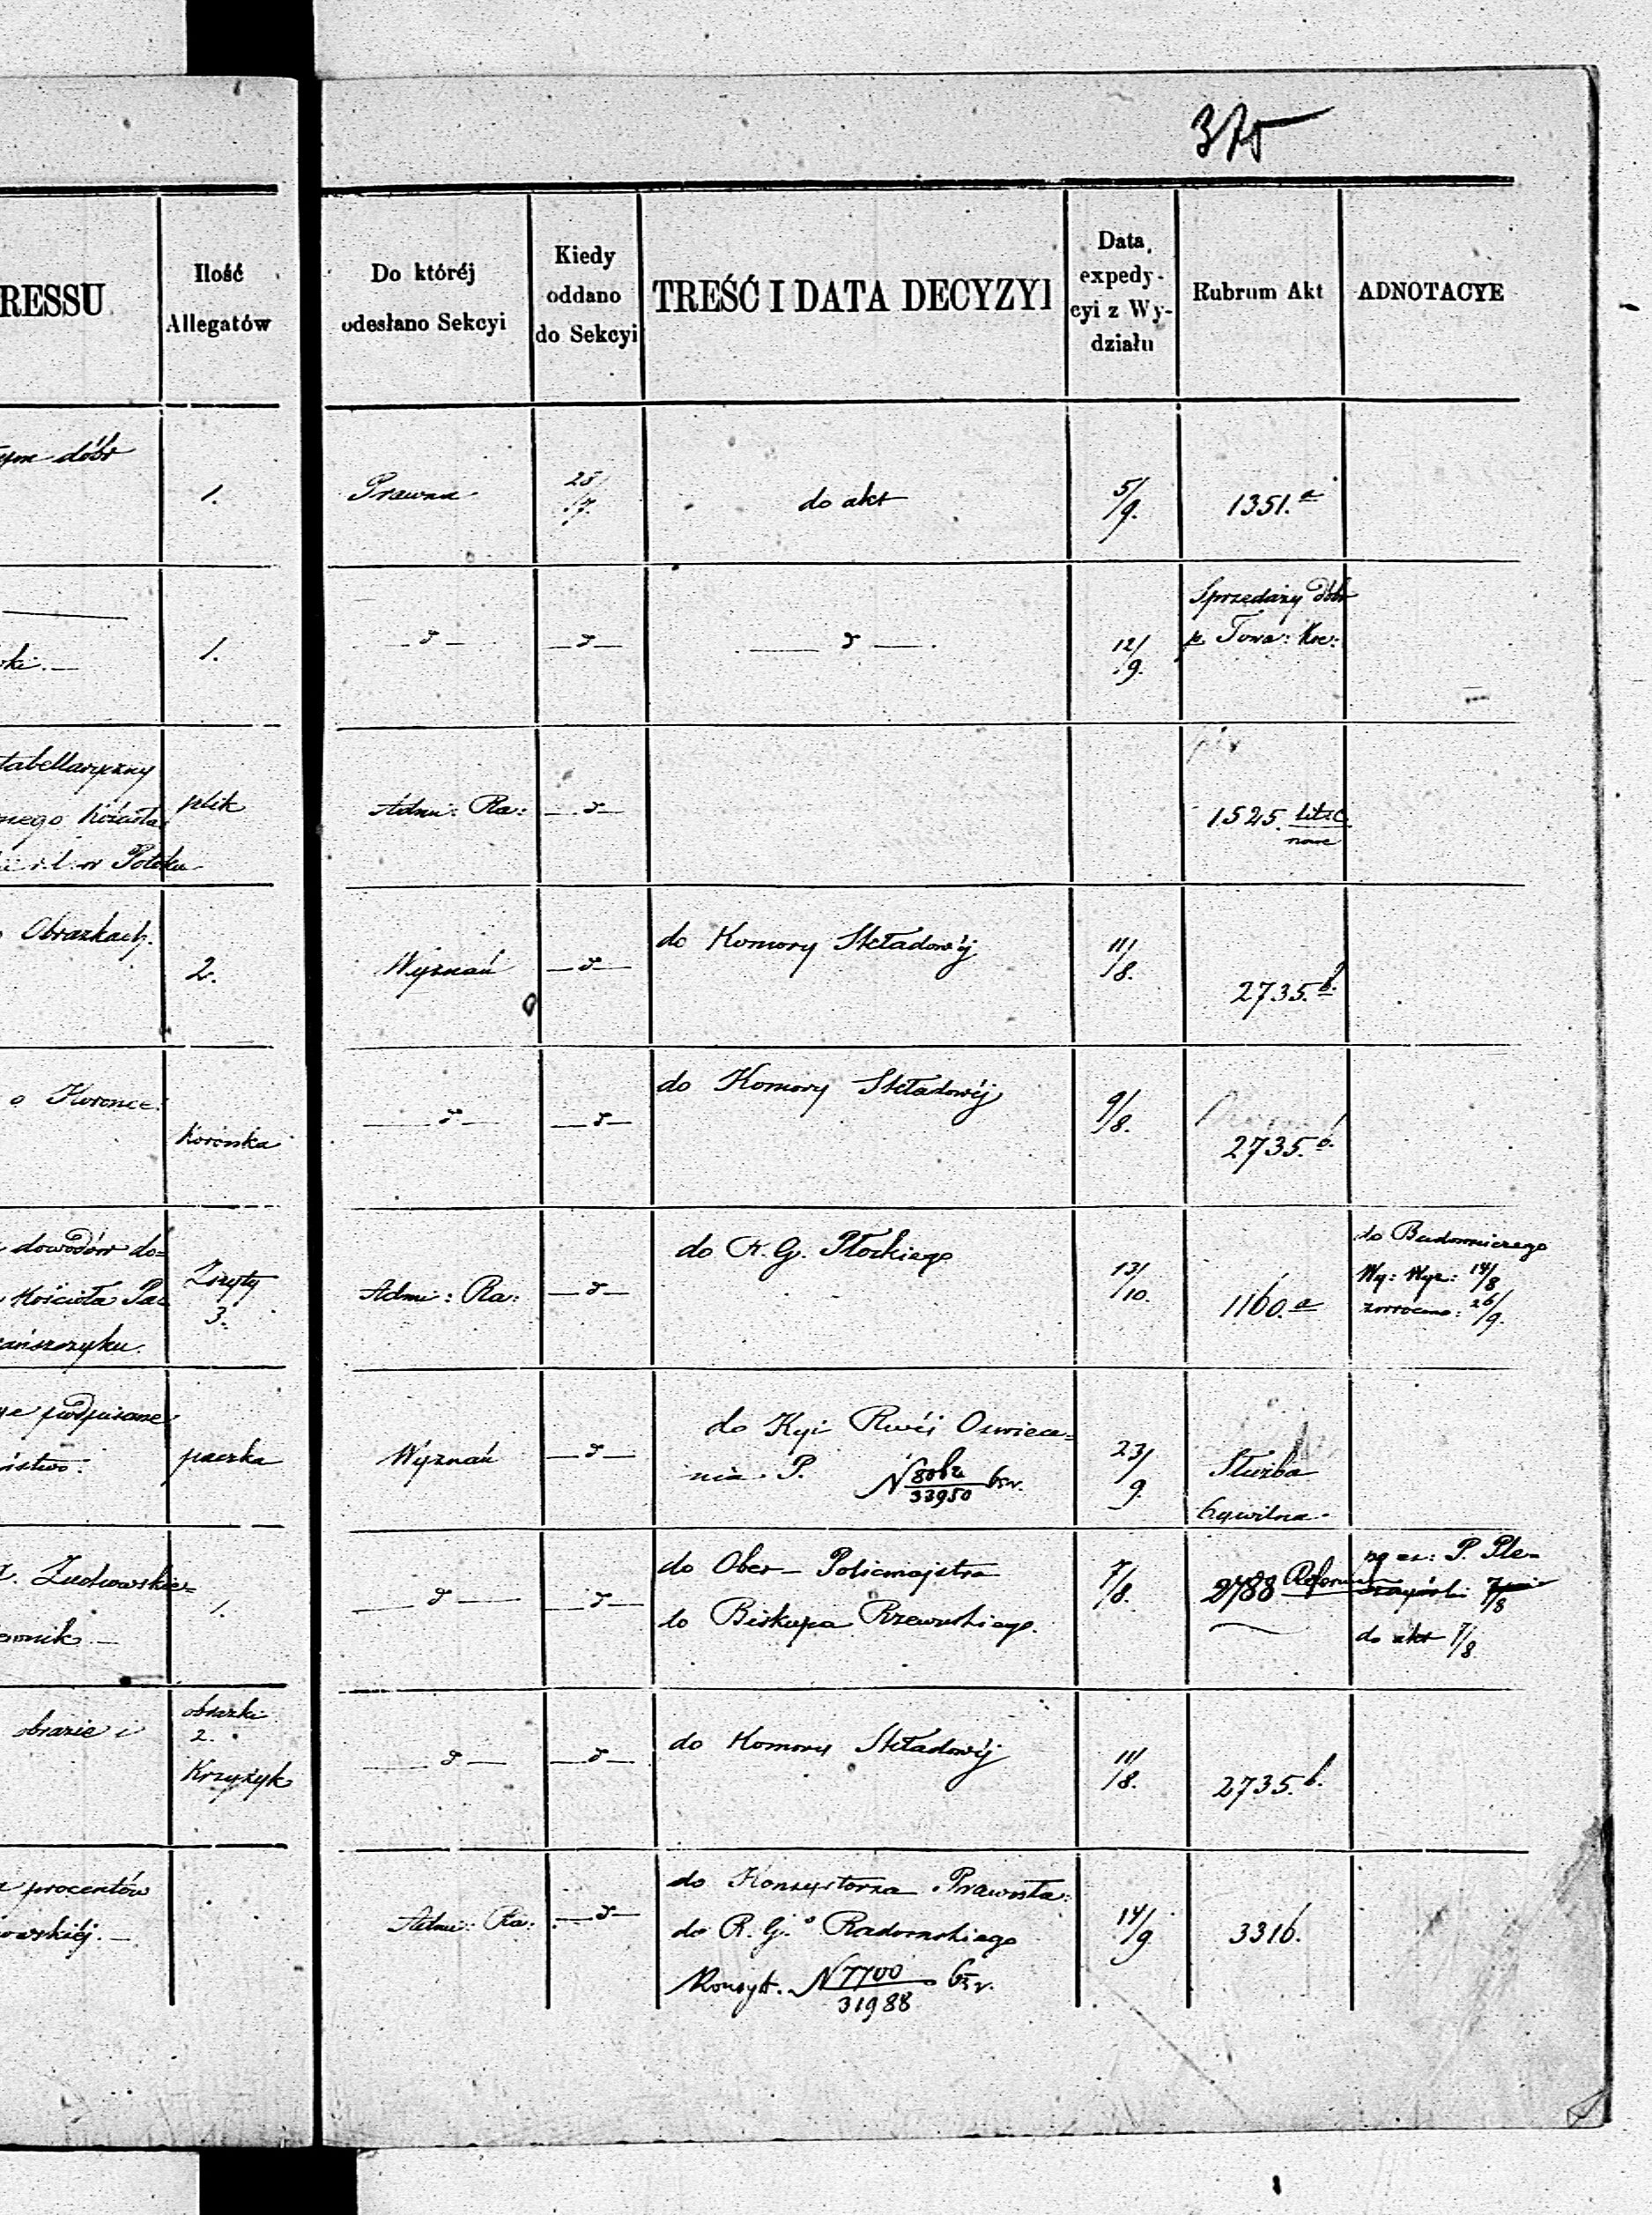 375
RESSU
Ilość
Allegatów
Do któréj
odesłano Sekcyi
Kiedy
oddano
do Sekcyi
TREŚĆ I DATA DECYZYI
Data
expedy-
cyi z Wy-
działu
Rubrum Akt
ADNOTACYE
dóbr
1.
Prawna
25/7.
do akt
5/9.
1351.a
1.
— d —
— d —
— d —
12/9.
Sprzedaży dóbr
p. Towa: Kre:
tabellaryczny
nego Kościoła
r. l. w Potoku
plik
Adm: Ra:
— d —
1525. lit: C.
nowe
Obrazkach.
2.
Wyznań
— d —
do Komory Składowéj
11/8.
2735.b.
o Koronce.
Koronka
— d —
— d —
do Komory Składowéj
9/8.
2735.b.
dowodów do=
Kościoła Pa
ańszczyku.
Zszyty
3.
Adm: Ra:
— d —
do R. G. Płockiego
13/10.
1160.a
do Budowniczego
Wy: Wyz: 14/8
zwrócono: 26/9.
podpisane
paczka
Wyznań
— d —
do Kyi Rwéj Oswiece=
nia P.
33950
23/9.
Służba
Cywilna.
1.
— d —
— d —
do Ober-Policmajstra
do Biskupa Rzewuskiego.
7/8.
2788
P. Ple-
7/8
do akt 7/8
obrazie i
obrazki
2.
Krzyżyk
— d —
— d —
do Komory Składowéj
11/8.
2735.b.
procentów
owskiéj. —
Adm: Ra:
— d —
do Konsystorza Prawosła:
do R. G. Radomskiego
Konsyst. N 7700
31988
14/9.
3316.